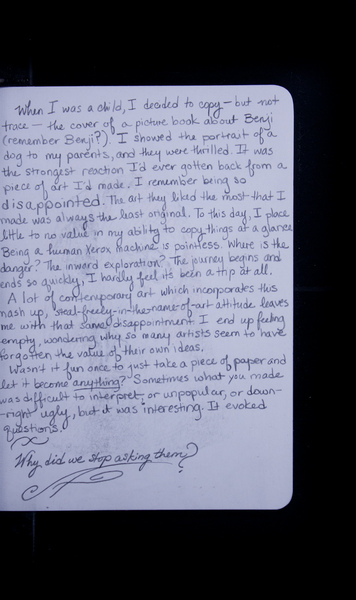 When I was a child, I decided to copy — but not
trace — the cover of a picture book about Benji
(remember Benji?). I showed the portrait of a
dog to my parents, and they were thrilled. It was
the strongest reaction I'd ever gotten back from a
piece of art I'd made. I remember being so
disappointed. The art they liked the most that I
made was always the least original. To this day, I place
little to no value in my ability to copy things at a glance.
Being a human Xerox machine is pointless. Where is the
danger? The inward exploration? The journey begins and
ends so quickly, I hardly feel it's been a trip at all.
A lot of contemporary art which incorporates this
mash up, steal-freely-in-the-name-of-art attitude leaves
me with that same disappointment. I end up feeling
empty, wondering why so many artists seem to have
forgotten the value of their own ideas.
Wasn't it fun once to just take a piece of paper and
let it become anything? Sometimes what you made
was difficult to interpret, or unpopular, or down-
right ugly, but it was interesting. It evoked
questions.
Why did we stop asking them?